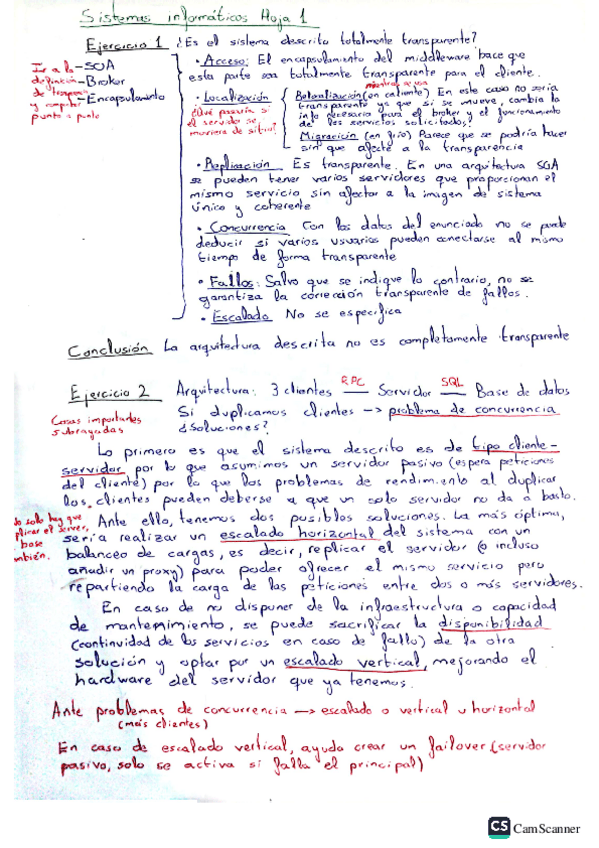 Sistemas informáticos Hoja 1
Ejercicio 1 ¿Es el sistema descrito totalmente transparente?
Ir a la
definición
de transparen
y comparar
punto a punto
- SOA
- Broker
- Encapsulamiento
· Acceso: El encapsulamiento del middleware hace que
esta parte sea totalmente transparente para el cliente.
· Localización
¿Qué pasaría si
el servidor se
moviera de sitio?
mientras se usa
Relocalización (en caliente) En este caso no sería
transparente ya que si se mueve, cambia la
info necesaria para el broker y el funcionamiento
de los servicios solicitados
Migración (en frío) Parece que se podría hacer
sin que afecte a la transparencia
· Replicación Es transparente. En una arquitectura SOA
se pueden tener varios servidores que proporcionan el
mismo servicio sin afectar a la imagen de sistema
único y coherente
· Concurrencia Con los datos del enunciado no se puede
deducir si varios usuarios pueden conectarse al mismo
tiempo de forma transparente
· Fallos: Salvo que se indique lo contrario, no se
garantiza la corrección transparente de fallos.
· Escalado No se especifica
Conclusión La arquitectura descrita no es completamente transparente
Ejercicio 2 Arquitectura: 3 clientes RPC Servidor SQL Base de datos
Si duplicamos clientes → problema de concurrencia
¿Soluciones?
Cosas importantes
subrayadas
Lo primero es que el sistema descrito es de tipo cliente-
servidor por lo que asumimos un servidor pasivo (espera peticiones
del cliente) por lo que los problemas de rendimiento al duplicar
los clientes pueden deberse a que un solo servidor no da a basto.
No solo hay que
plicar el server,
base
mbién.
Ante ello, tenemos dos posibles soluciones. La más óptima,
sería realizar un escalado horizontal del sistema con un
balanceo de cargas, es decir, replicar el servidor (o incluso
añadir un proxy) para poder ofrecer el mismo servicio pero
repartiendo la carga de las peticiones entre dos o más servidores.
En caso de no disponer de la infraestructura o capacidad
de mantenimiento, se puede sacrificar la disponibilidad
(continuidad de los servicios en caso de fallo) de la otra
solución y optar por un escalado vertical, mejorando el
hardware del servidor que ya tenemos.
Ante problemas de concurrencia → escalado o vertical u horizontal
(más clientes)
En caso de escalado vertical, ayuda crear un failover (servidor
pasivo, solo se activa si falla el principal)
CS CamScanner